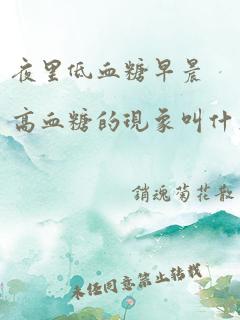 夜里低血糖早晨
高血糖的现象叫什
銷魂菊花散
未经同意禁止转载